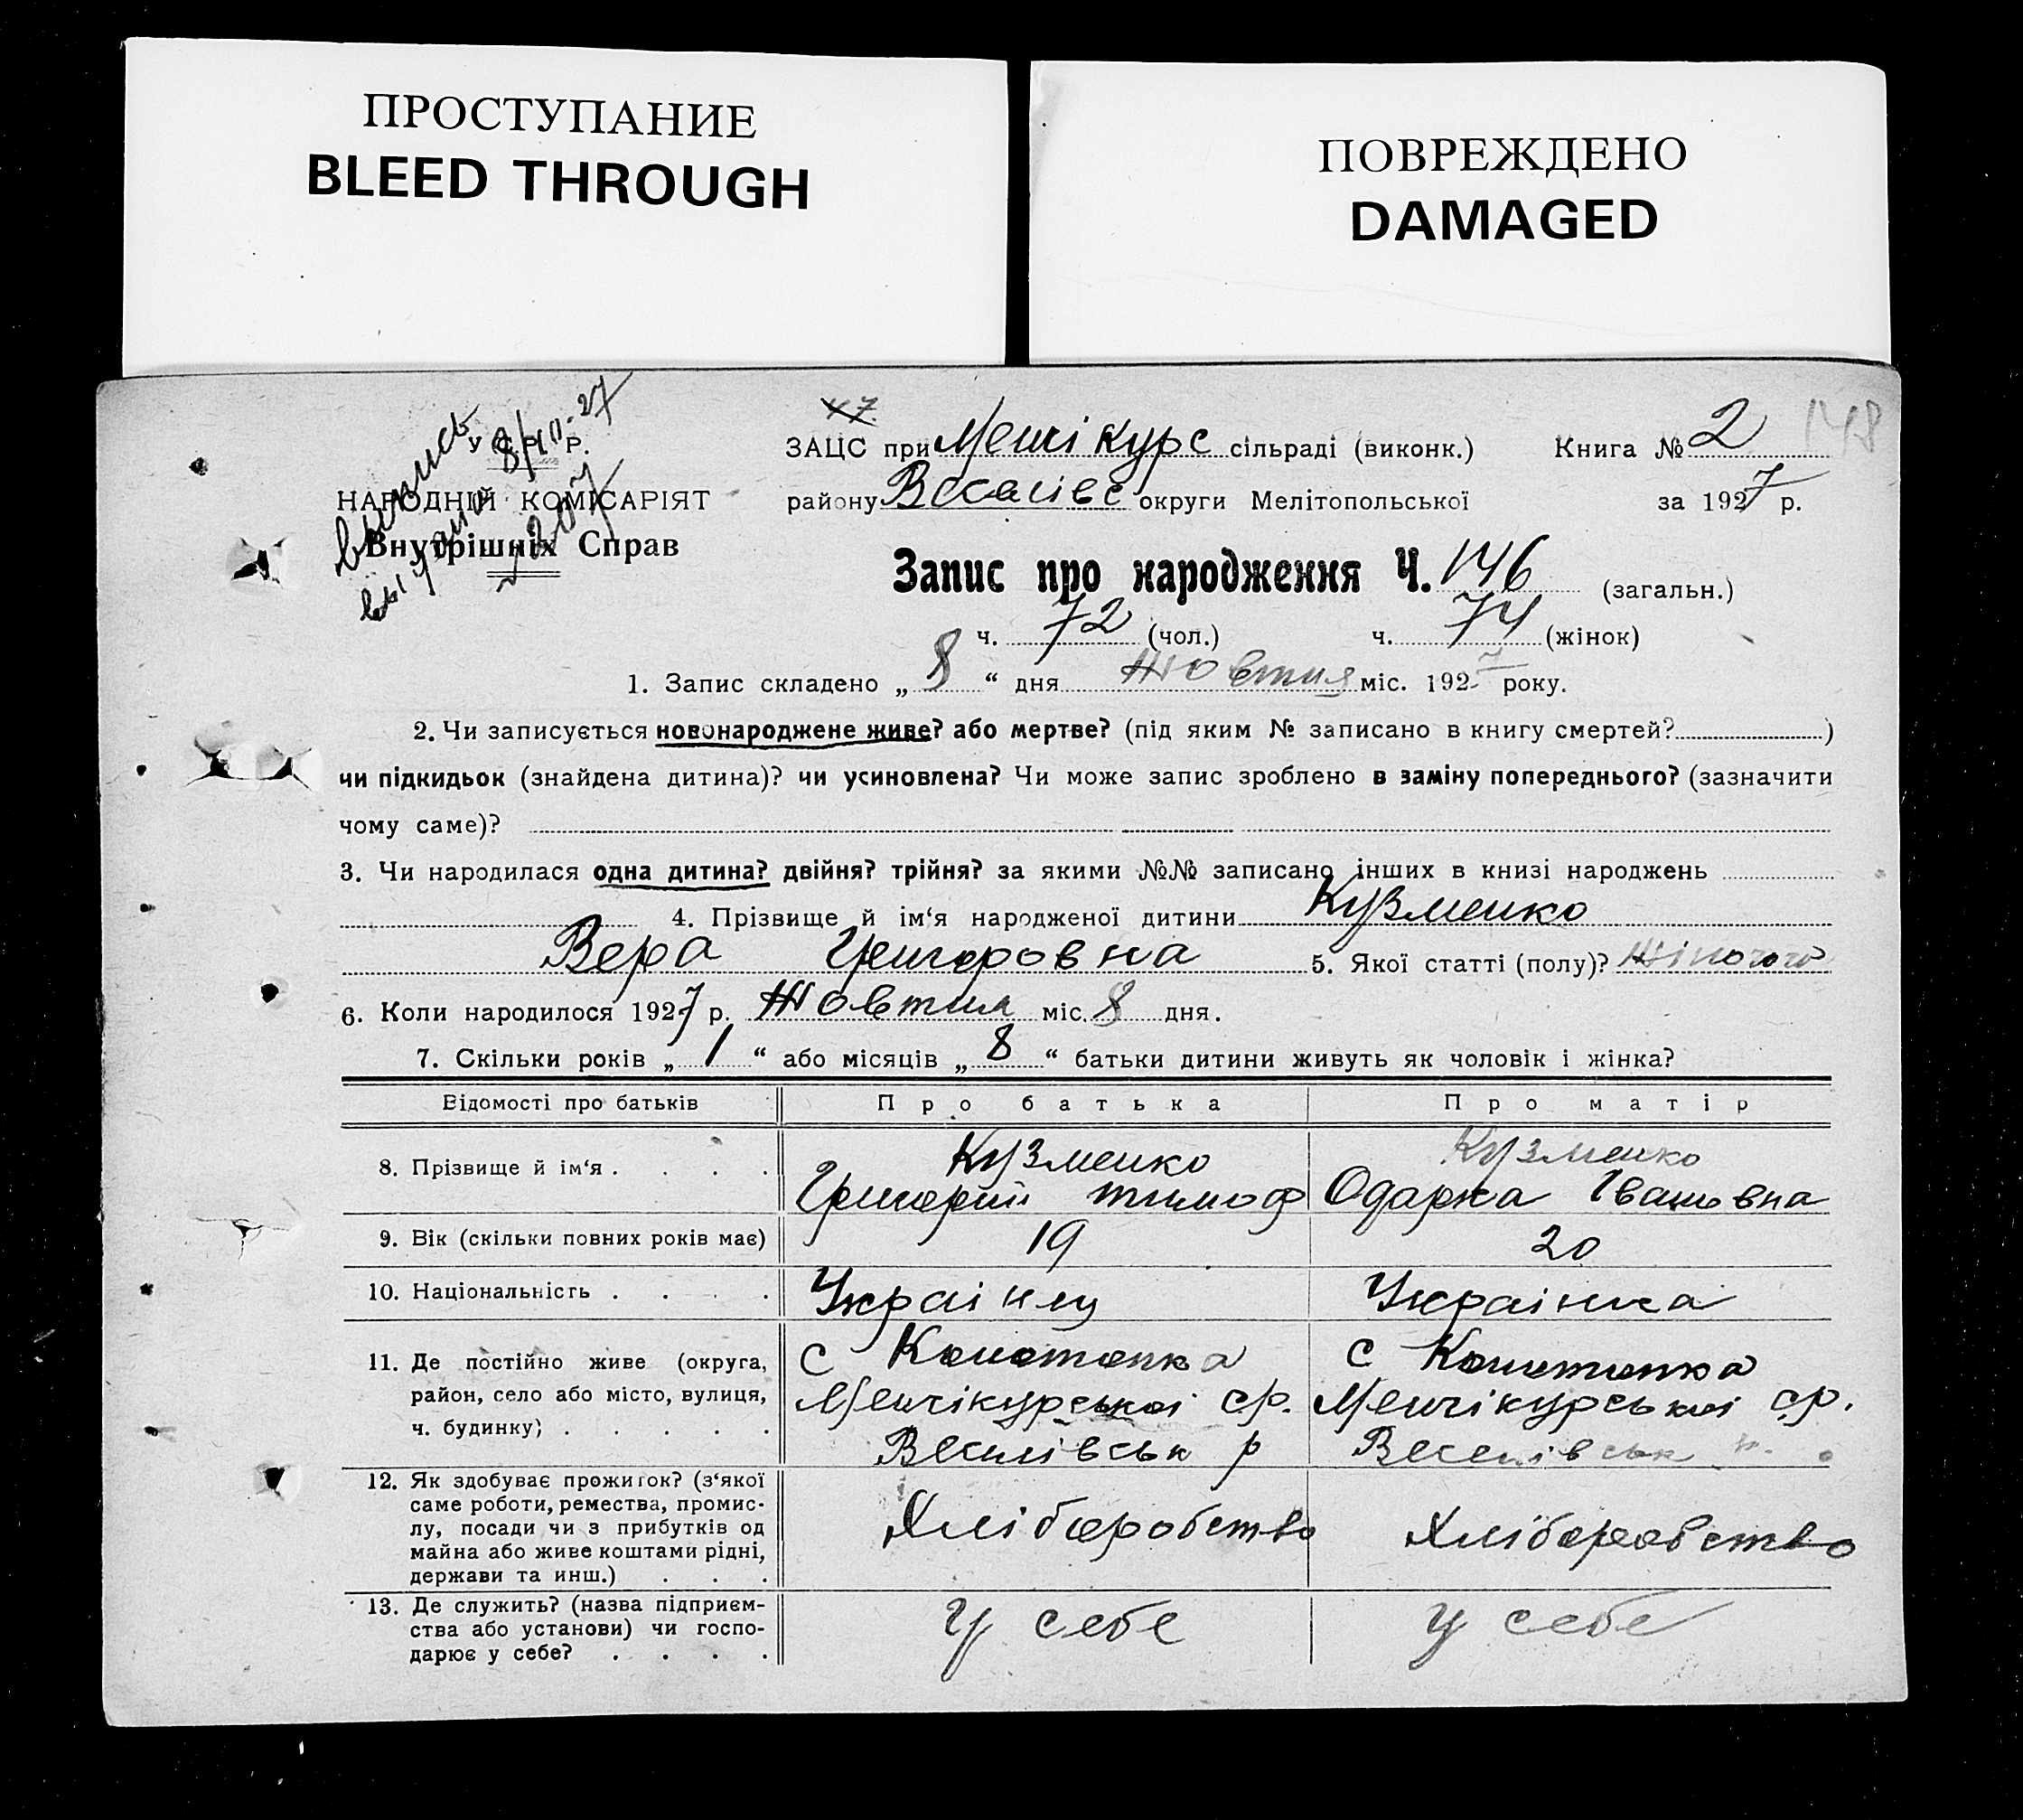 ПРОСТУПАНИЕ
BLEED THROUGH
ПОВРЕЖДЕНО
DAMAGED
У.С.Р.Р.
НАРОДНІЙ КОМІСАРІЯТ
Внутрішніх Справ
выпись 8/10-27
выдано
47
ЗАЦС при Менчікурс сільраді (виконк.) Книга № 2 148
району Веселівс округи Мелітопольської за 1927 р.
Запис про народження Ч. 146 (загальн.)
ч. 72 (чол.) ч. 74 (жінок)
1. Запис складено „ 8 “ дня Жовтня міс. 1927 року.
2. Чи записується новонароджене живе? або мертве? (під яким № записано в книгу смертей? )
чи підкидьок (знайдена дитина)? чи усиновлена? Чи може запис зроблено в заміну попереднього? (зазначити
чому саме)?
3. Чи народилася одна дитина? двійня? трійня? за якими №№ записано інших в книзі народжень
4. Прізвище й ім‘я народженої дитини Кузменко
Вера Григоровна 5. Якої статті (полу)? жіночого
6. Коли народилося 1927 р. Жовтня міс. 8 дня.
7. Скільки років „ 1 “ або місяців „ 8 “ батьки дитини живуть як чоловік і жінка?
Відомості про батьків Про батька Про матір
8. Прізвище й ім‘я . . . . Кузменко Кузменко
Григорий тимоф Одарка Івановна
9. Вік (скільки повних років має) 19 20
10. Національність . . . . Українец Українка
11. Де постійно живе (округа, с Конотопка с Конотопка
район, село або місто, вулиця, Менчікурської ср. Менчікурської ср.
ч. будинку) . . . . . Веселівськ р Веселівськ р.
12. Як здобуває прожиток? (з‘якої
саме роботи, ремества, промис-
лу, посади чи з прибутків од Хліборобство Хліборобство
майна або живе коштами рідні,
держави та инш.) . . .
13. Де служить? (назва підприєм-
ства або установи) чи госпо- У себе У себе
дарює у себе? . . . .